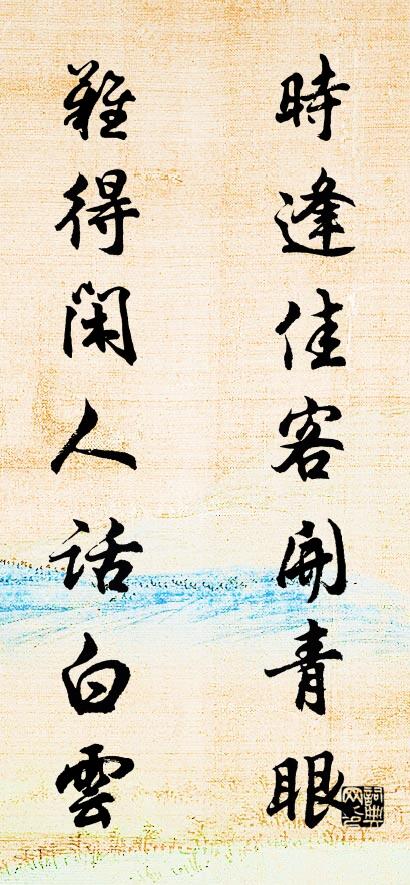 時逢佳客開青眼
難得閑人話白雲